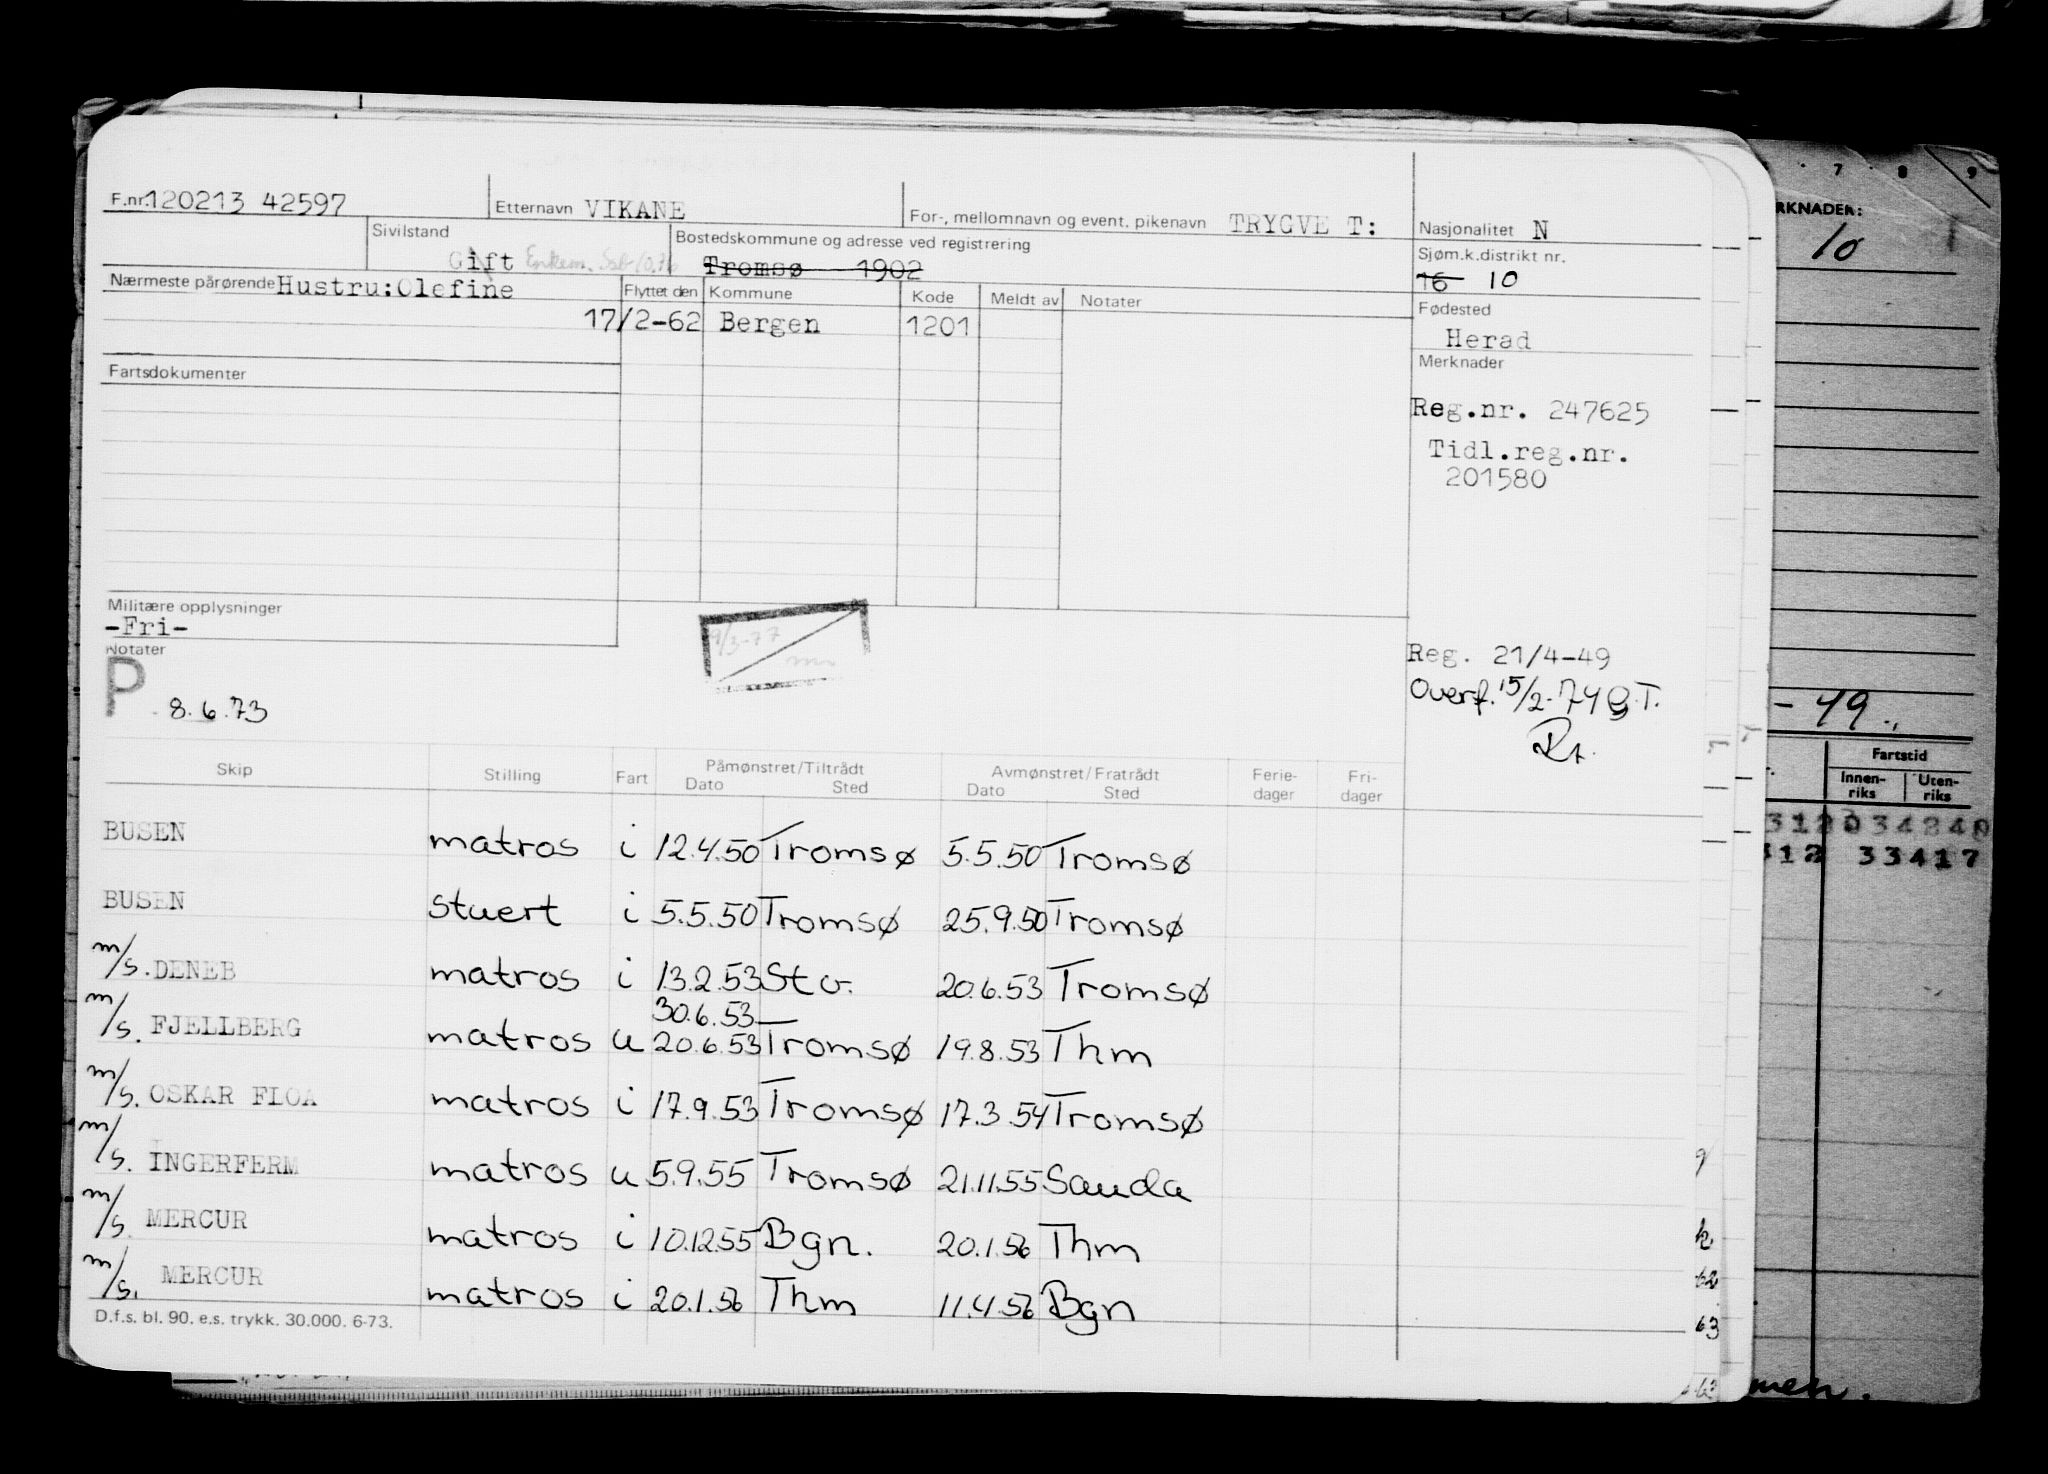 F.nr. 120213 42597 Etternavn VIKANE For-, mellomnavn og event. pikenavn TRYGVE T: Nasjonalitet N
Sivilstand Gift Enkem. Bostedskommune og adresse ved registrering Tromsø 1902 Sjøm.k.distrikt nr. 16 10
Nærmeste pårørende Hustru:Olefine Flyttet den Kommune Kode Meldt av Notater Fødested
17/2-62 Bergen 1201 Herad
Fartsdokumenter Merknader
Reg.nr. 247625
Tidl.reg.nr.
201580
Militære opplysninger
-Fri-
Notater
P 8.6.73
9/3-77
Reg. 21/4-49
Overf. 15/2-74 G.T.
Rt.
Skip Stilling Fart Påmønstret/Tiltrådt Avmønstret/Fratrådt Ferie- Fri-
Dato Sted Dato Sted dager dager
BUSEN matros i 12.4.50 Tromsø 5.5.50 Tromsø
BUSEN stuert i 5.5.50 Tromsø 25.9.50 Tromsø
m/s. DENEB matros i 13.2.53 Stv. 20.6.53 Tromsø
30.6.53
m/s. FJELLBERG matros u 20.6.53 Tromsø 19.8.53 Thm
m/s. OSKAR FLOA matros i 17.9.53 Tromsø 17.3.54 Tromsø
m/s. INGERFERM matros u 5.9.55 Tromsø 21.11.55 Sauda
m/s. MERCUR matros i 10.12.55 Bgn. 20.1.56 Thm
m/s. MERCUR matros i 20.1.56 Thm 11.4.56 Bgn
D.f.s. bl. 90. e.s. trykk. 30.000. 6-73.
7 8 9
RKNADER:
10
- 49.
Fartstid
Innen- Uten-
riks riks
33417
62
63
63